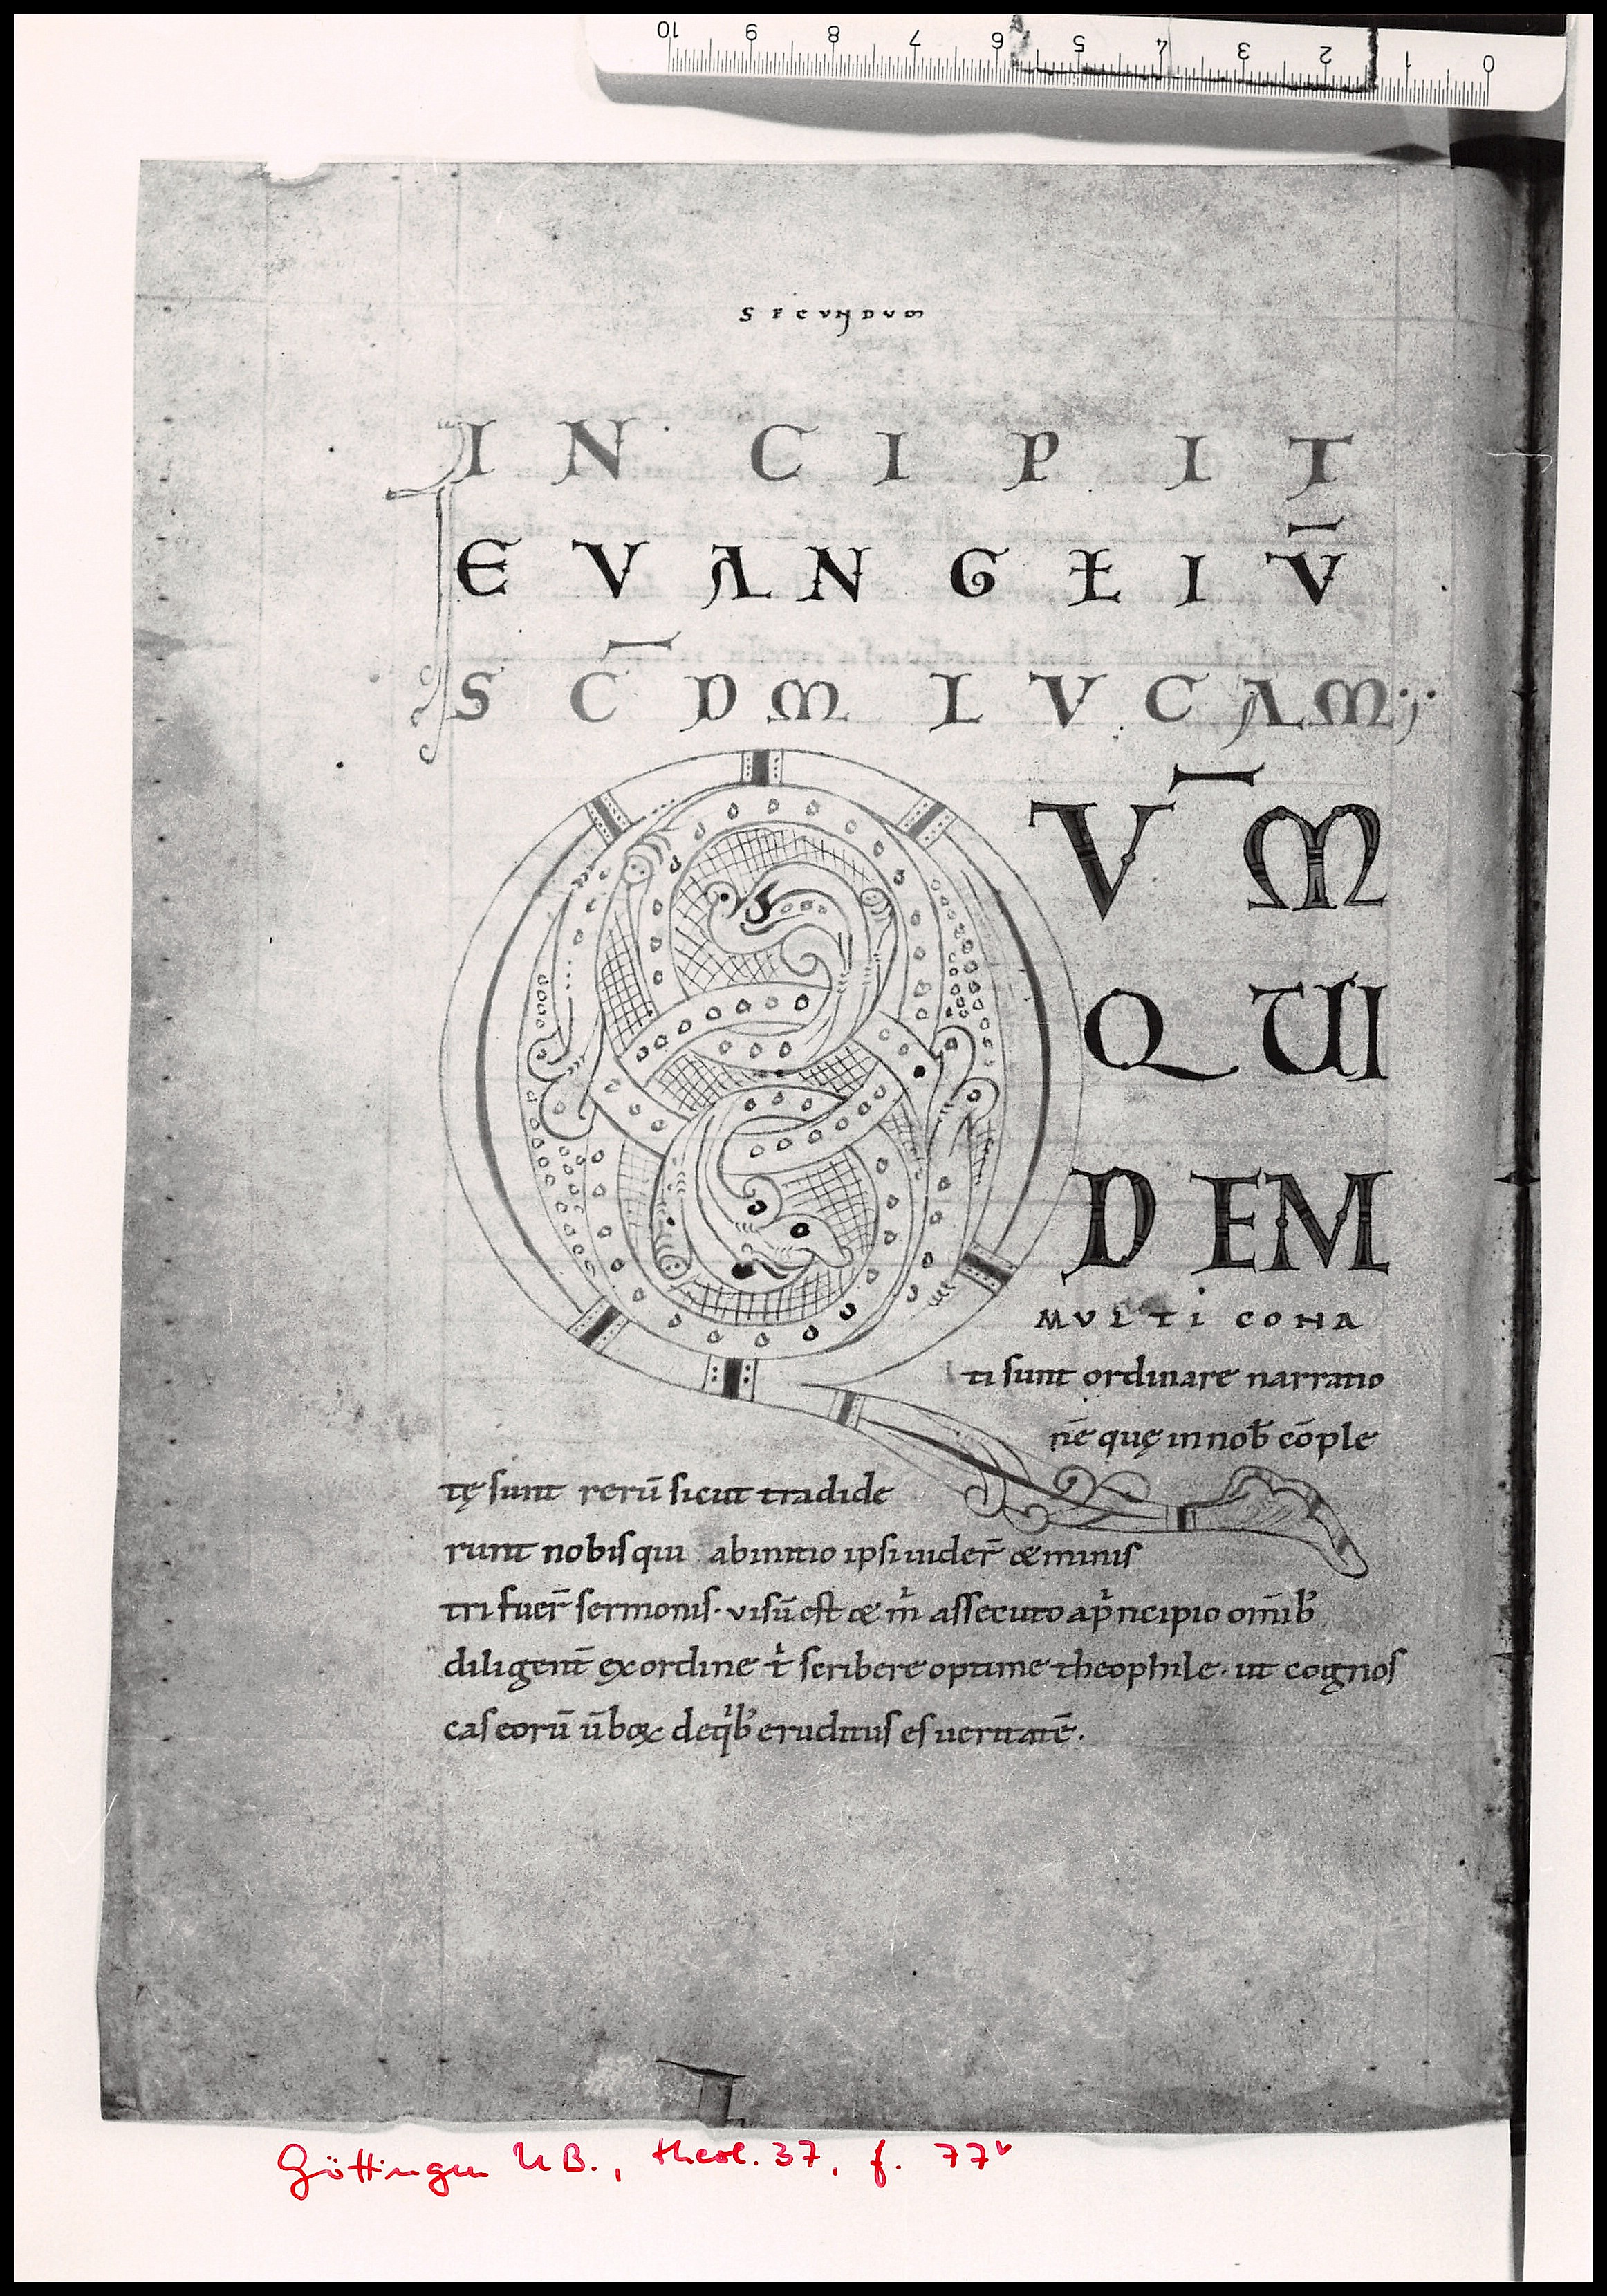 10 9 8 7 6 5 4 3 2 1 0
SECUNDUM
IN CIPIT
EVANGŁIV̄
SC̄DM LVCAM;
QVM̄
QUI
DEM
MVLTI CONA
ti sunt ordinare narratio
nē quę in nob̄ cōple
tę sunt rerū sicut tradide
runt nobis qui ab initio ipsi uider̄ & minis
tri fuer̄ sermonis· visū est & m̓ assecuto a p̓ncipio om̄ib;
diligent̄ ex ordine t̓ scribere optime theophile· ut cognos
cas eorū ūboꝝ de q̓b; eruditus es ueritatē·
Göttingen UB., theol. 37, f. 77v